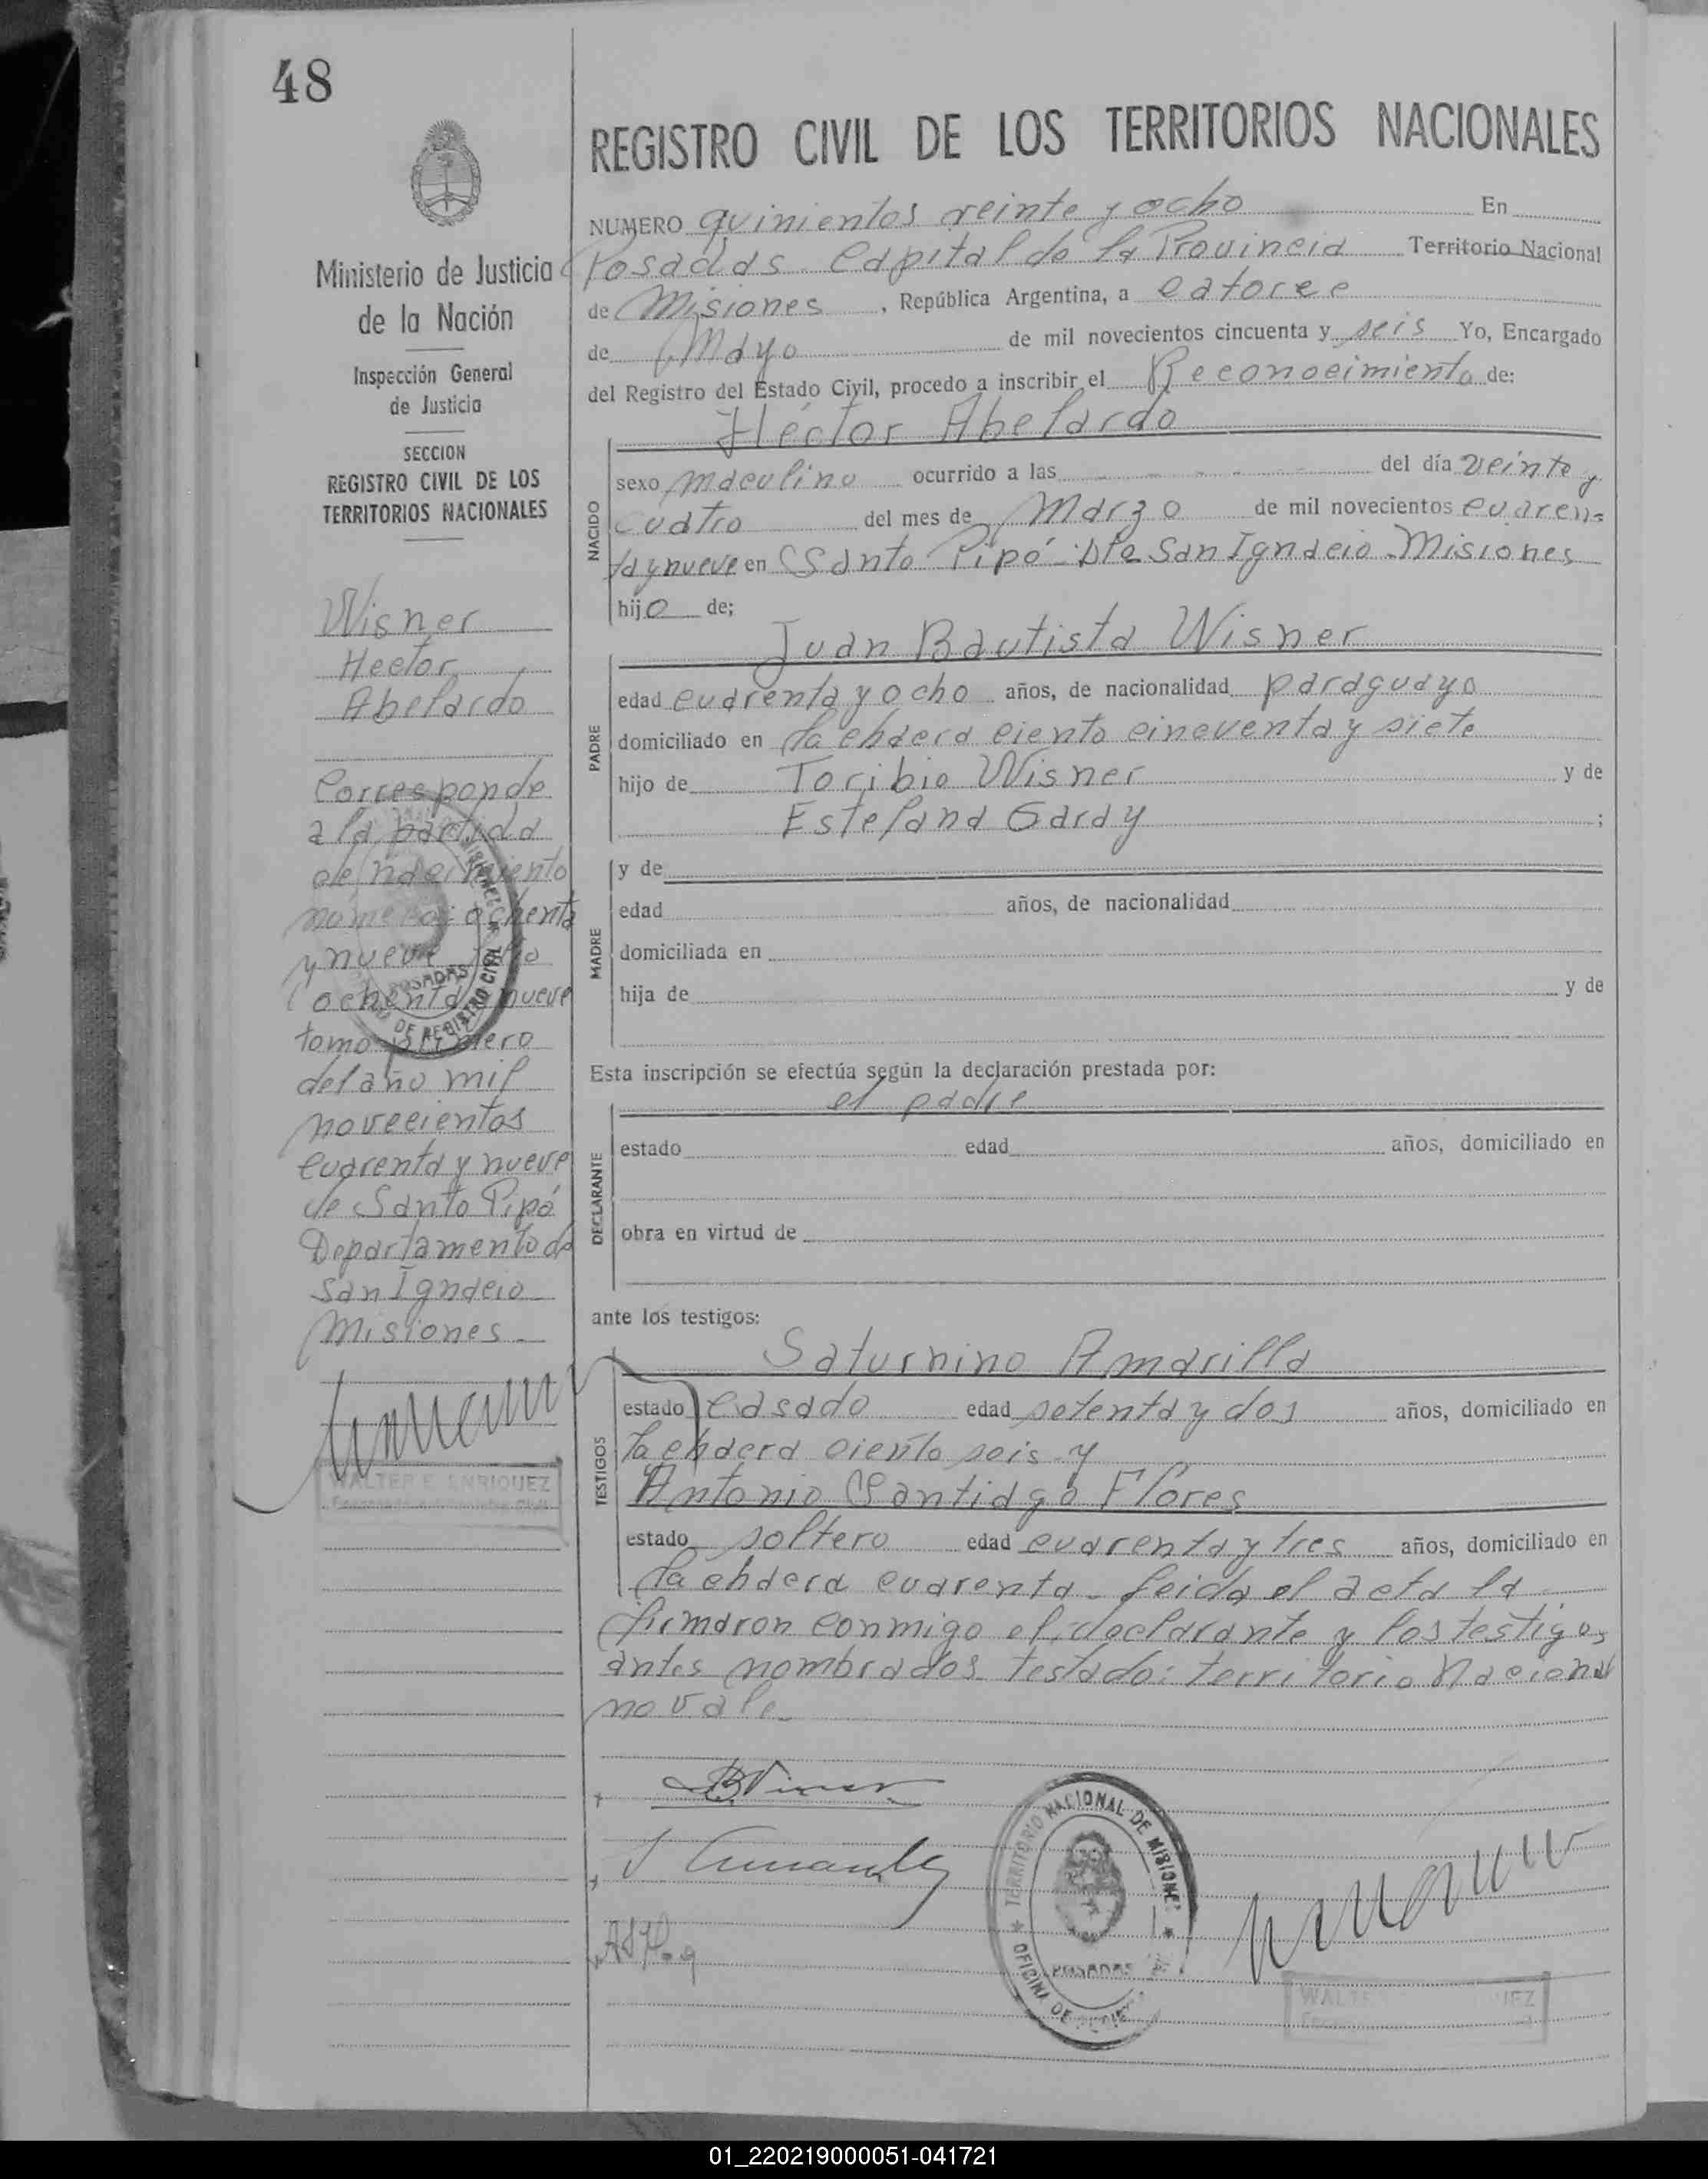 48
REGISTRO CIVIL DE LOS TERRITORIOS NACIONALES
Ministerio de Justicia
de la Nación
Inspección General
de Justicia
SECCION
REGISTRO CIVIL DE LOS
TERRITORIOS NACIONALES
Wisner
Hector
Abelardo
Corresponde
a la partida
de nacimiento
número ochenta
y nueve
ochenta nueve
tomo primero
del año mil
novecientos
cuarenta y nueve
de Santo Pipó
Departamento de
San Ignacio
Misiones
WALTER E. ENRIQUEZ
NUMERO quinientos veinte y ocho En
Posadas Capital de la Provincia Territorio Nacional
de Misiones, República Argentina, a catorce
de Mayo de mil novecientos cincuenta y seis Yo, Encargado
del Registro del Estado Civil, procedo a inscribir el Reconocimiento de:
Héctor Abelardo
NACIDO
sexo masculino ocurrido a las del día veinte y
cuatro del mes de Marzo de mil novecientos cuaren-
ta y nueve en Santo Pipó Dto San Ignacio Misiones
hijo de;
Juan Bautista Wisner
PADRE
edad cuarenta y ocho años, de nacionalidad paraguayo
domiciliado en la chacra ciento cincuenta y siete
hijo de Toribio Wisner y de
Estefana Garay ;
MADRE
y de
edad años, de nacionalidad
domiciliada en
hija de y de
Esta inscripción se efectúa según la declaración prestada por:
el padre
DECLARANTE
estado edad años, domiciliado en
obra en virtud de
ante los testigos:
Saturnino Amarilla
TESTIGOS
estado casado edad setenta y dos años, domiciliado en
la chacra ciento seis y
Antonio Santiago Flores
estado soltero edad cuarenta y tres años, domiciliado en
la chacra cuarenta. Leida el acta la
firmaron conmigo el declarante y los testigos
antes nombrados. testado: territorio Nacional
no vale.
TERRITORIO NACIONAL DE MISIONES
POSADAS
OFICINA DE
01_220219000051-041721